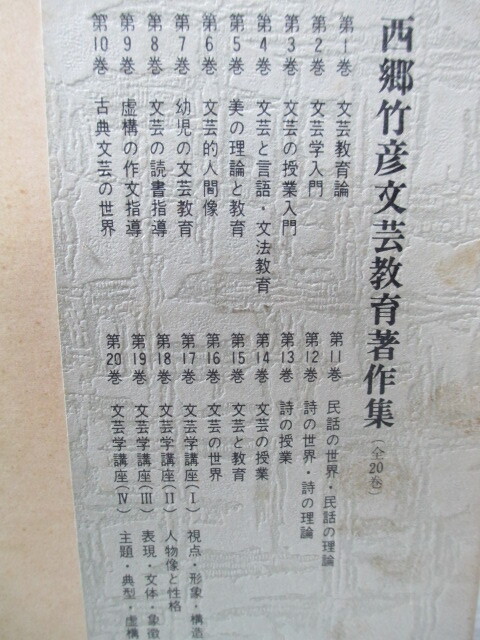 西郷竹彦文芸教育著作集(全20巻)
第1巻 文芸教育論
第2巻 文芸学入門
第3巻 文芸の授業入門
第4巻 文芸と言語・文法教育
第5巻 美の理論と教育
第6巻 文芸的人間像
第7巻 幼児の文芸教育
第8巻 文芸の読書指導
第9巻 虚構の作文指導
第10巻 古典文芸の世界
第11巻 民話の世界・民話の理論
第12巻 詩の世界・詩の理論
第13巻 詩の授業
第14巻 文芸の授業
第15巻 文芸と教育
第16巻 文芸の世界
第17巻 文芸学講座(I) 視点・形象・構造
第18巻 文芸学講座(II) 人物像と性格
第19巻 文芸学講座(III) 表現・文体・象徴
第20巻 文芸学講座(IV) 主題・典型・虚構